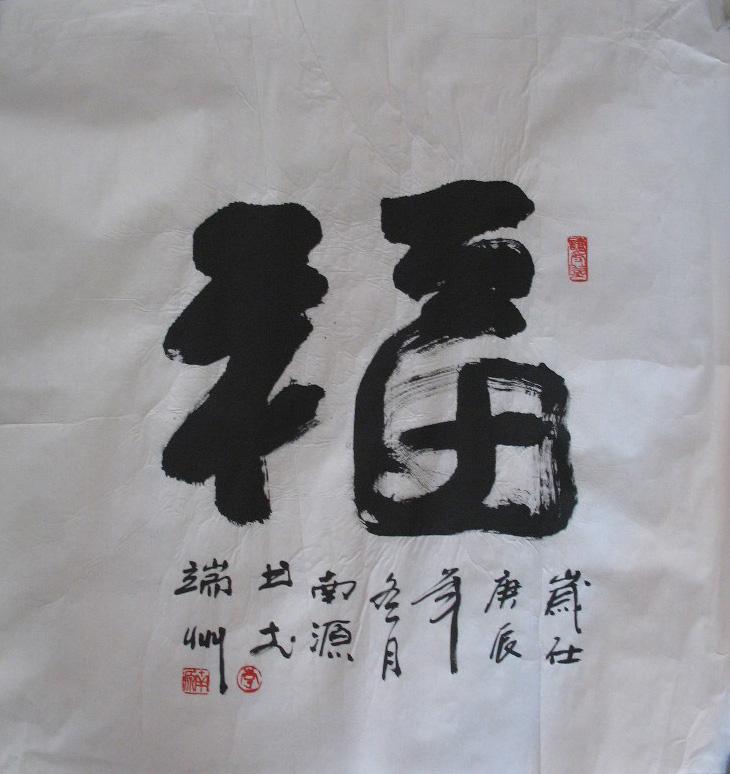 福
歲在
庚辰
年
冬月
南源
書於
端州